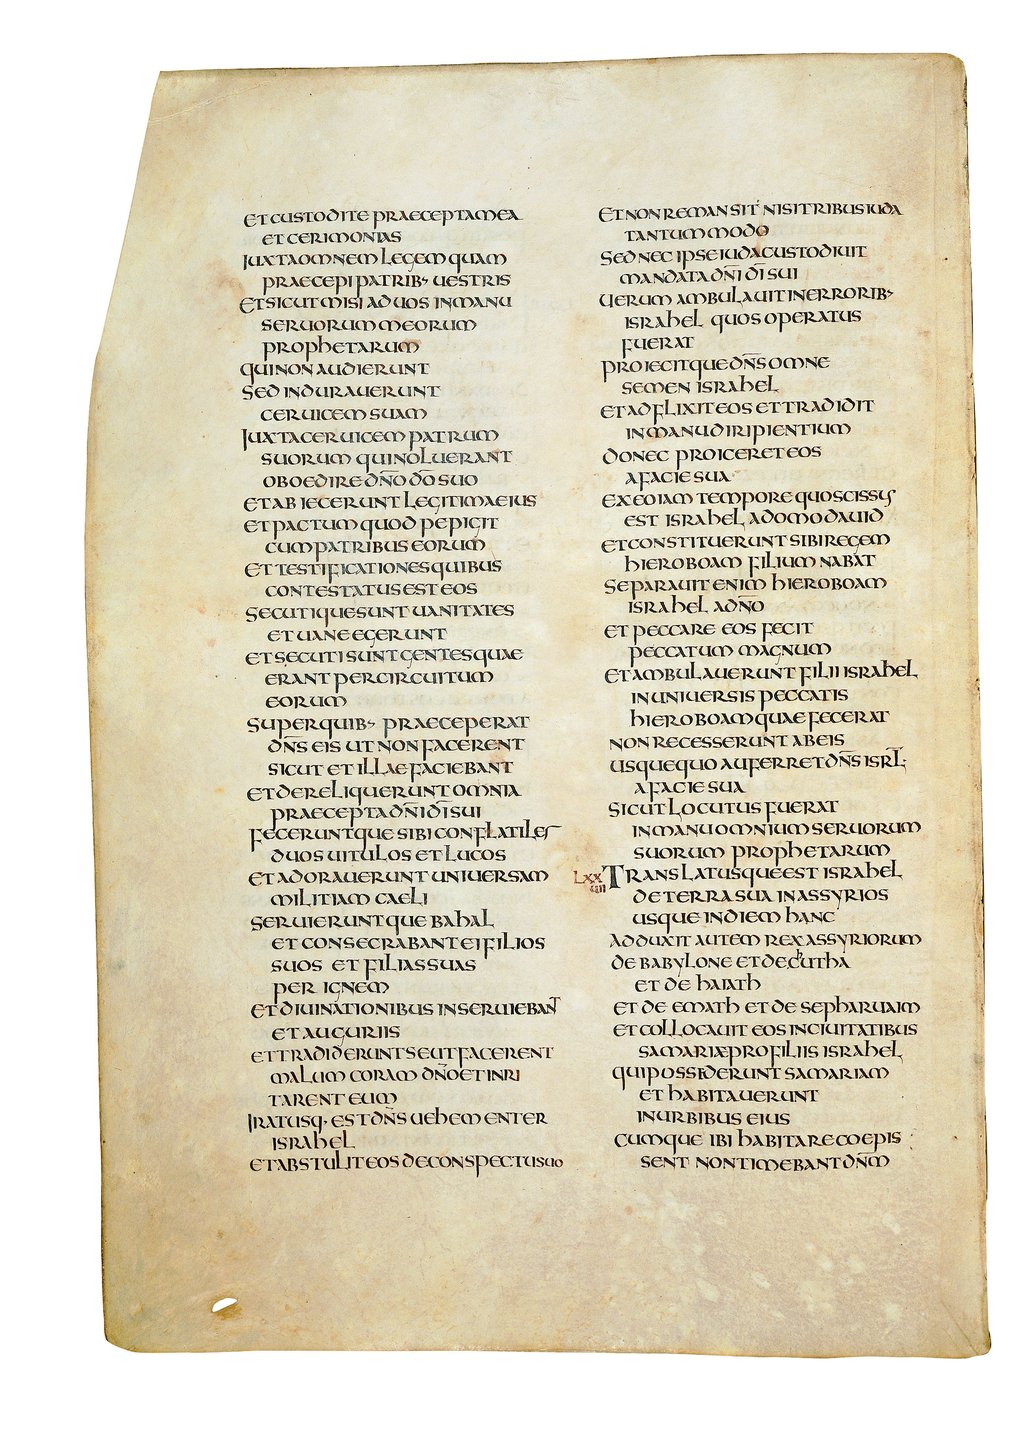 ET CUSTODITE PRAECEPTA MEA
ET CERIMONIAS
IUXTA OMNEM LEGEM QUAM
PRAECEPI PATRIB· UESTRIS
ET SICUT MISI AD UOS IN MANU
SERUORUM MEORUM
PROPHETARUM
QUI NON AUDIERUNT
SED INDURAUERUNT
CERUICEM SUAM
IUXTA CERUICEM PATRUM
SUORUM QUI NOLUERANT
OBOEDIRE DN̄O DŌ SUO
ET ABIECERUNT LEGITIMA EIUS
ET PACTUM QUOD PEPIGIT
CUM PATRIBUS EORUM
ET TESTIFICATIONES QUIBUS
CONTESTATUS EST EOS
SECUTIQUE SUNT UANITATES
ET UANE EGERUNT
ET SECUTI SUNT GENTES QUAE
ERANT PER CIRCUITUM
EORUM
SUPER QUIB· PRAECEPERAT
DN̄S EIS UT NON FACERENT
SICUT ET ILLAE FACIEBANT
ET DERELIQUERUNT OMNIA
PRAECEPTA DN̄I DĪ SUI
FECERUNTQUE SIBI CONFLATILES
DUOS UITULOS ET LUCOS
ET ADORAUERUNT UNIUERSAM
MILITIAM CAELI
SERUIERUNTQUE BAHAL
ET CONSECRABANT EI FILIOS
SUOS ET FILIAS SUAS
PER IGNEM
ET DIUINATIONIBUS INSERUIEBANT
ET AUGURIIS
ET TRADIDERUNT SE UT FACERENT
MALUM CORAM DN̄O ET INRI
TARENT EUM
IRATUSQ· EST DN̄S UEHEMENTER
ISRAHEL
ET ABSTULIT EOS DE CONSPECTU SUO
ET NON REMANSIT NISI TRIBUS IUDA
TANTUMMODO
SED NEC IPSE IUDA CUSTODIUIT
MANDATA DN̄I DĪ SUI
UERUM AMBULAUIT IN ERRORIB·
ISRAHEL QUOS OPERATUS
FUERAT
PROIECITQUE DN̄S OMNE
SEMEN ISRAHEL
ET ADFLIXIT EOS ET TRADIDIT
IN MANU DIRIPIENTIUM
DONEC PROICERET EOS
A FACIE SUA
EX EO IAM TEMPORE QUO SCISSUS
EST ISRAHEL A DOMO DAUID
ET CONSTITUERUNT SIBI REGEM
HIEROBOAM FILIUM NABAT
SEPARAUIT ENIM HIEROBOAM
ISRAHEL A DN̄O
ET PECCARE EOS FECIT
PECCATUM MAGNUM
ET AMBULAUERUNT FILII ISRAHEL
IN UNIUERSIS PECCATIS
HIEROBOAM QUAE FECERAT
NON RECESSERUNT AB EIS
USQUEQUO AUFERRET DN̄S ISRL̄·
A FACIE SUA
SICUT LOCUTUS FUERAT
IN MANU OMNIUM SERUORUM
SUORUM PROPHETARUM
LXX
IIII
TRANSLATUSQUE EST ISRAHEL
DE TERRA SUA IN ASSYRIOS
USQUE IN DIEM HANC
ADDUXIT AUTEM REX ASSYRIORUM
DE BABYLONE ET DE CUTHA
ET DE HAIATH
ET DE EMATH ET DE SEPHARUAIM
ET COLLOCAUIT EOS IN CIUITATIBUS
SAMARIAE PRO FILIIS ISRAHEL
QUI POSSIDERUNT SAMARIAM
ET HABITAUERUNT
IN URBIBUS EIUS
CUMQUE IBI HABITARE COEPIS
SENT NON TIMEBANT DN̄M